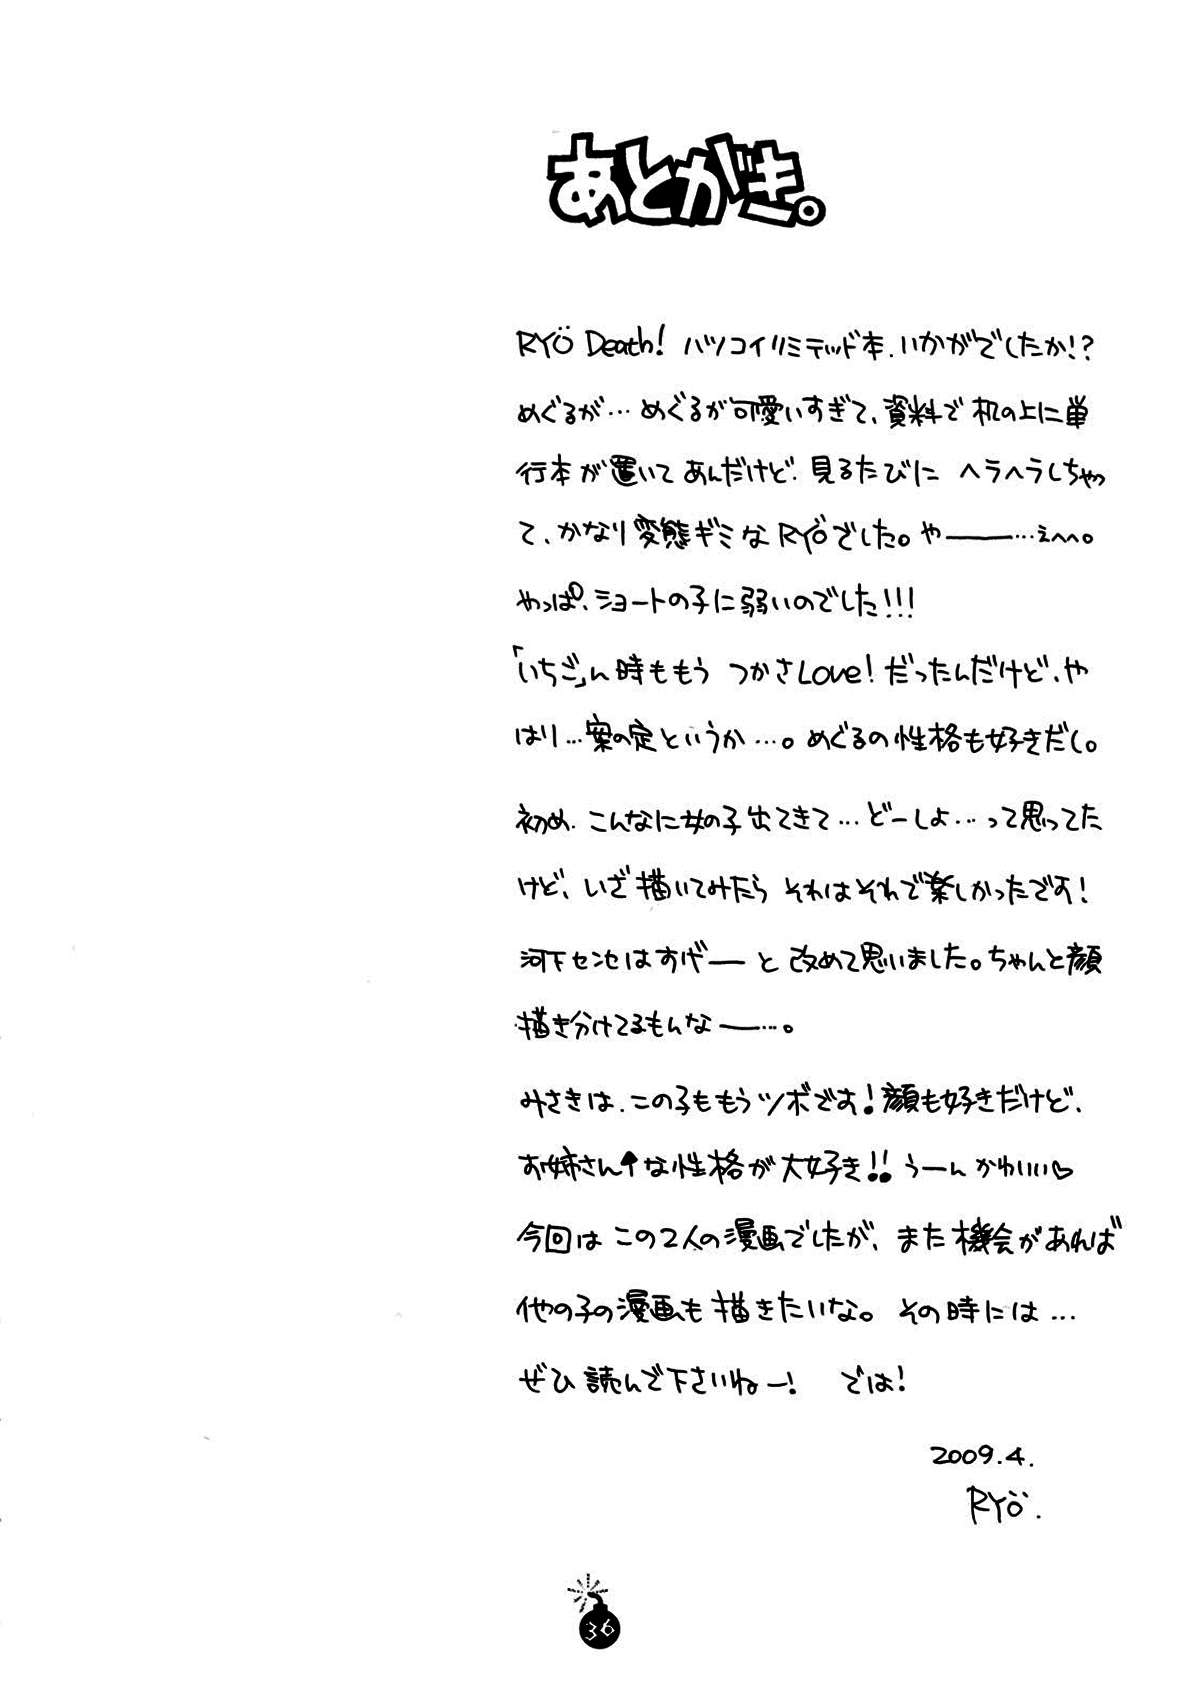 あとがき。
RYÖ Death! ハツコイリミテッド本、いかがでしたか!?
めぐるが…めぐるが可愛いすぎて、資料で机の上に単
行本が置いてあんだけど、見るたびに ヘラヘラしちゃっ
て、かなり変態ギミなRYÖでした。やー…えへへ。
やっぱ、ショートの子に弱いのでした!!!
「いちご」ん時ももう つかさLove!だったんだけど、や
はり…案の定というか…。めぐるの性格も好きだし。
初め、こんなに女の子出てきて…どーしよ…って思ってた
けど、いざ描いてみたら それはそれで楽しかったです!
河下センセはすげーと 改めて思いました。ちゃんと顔
描き分けてるもんなー…。
みさきは、この子ももうツボです!顔も好きだけど、
お姉さん↑な性格が大好き!!うーん かわいい♡
今回は この2人の漫画でしたが、また機会があれば
他の子の漫画も描きたいな。その時には…
ぜひ 読んで下さいねー! では!
2009.4.
RYÖ.
36